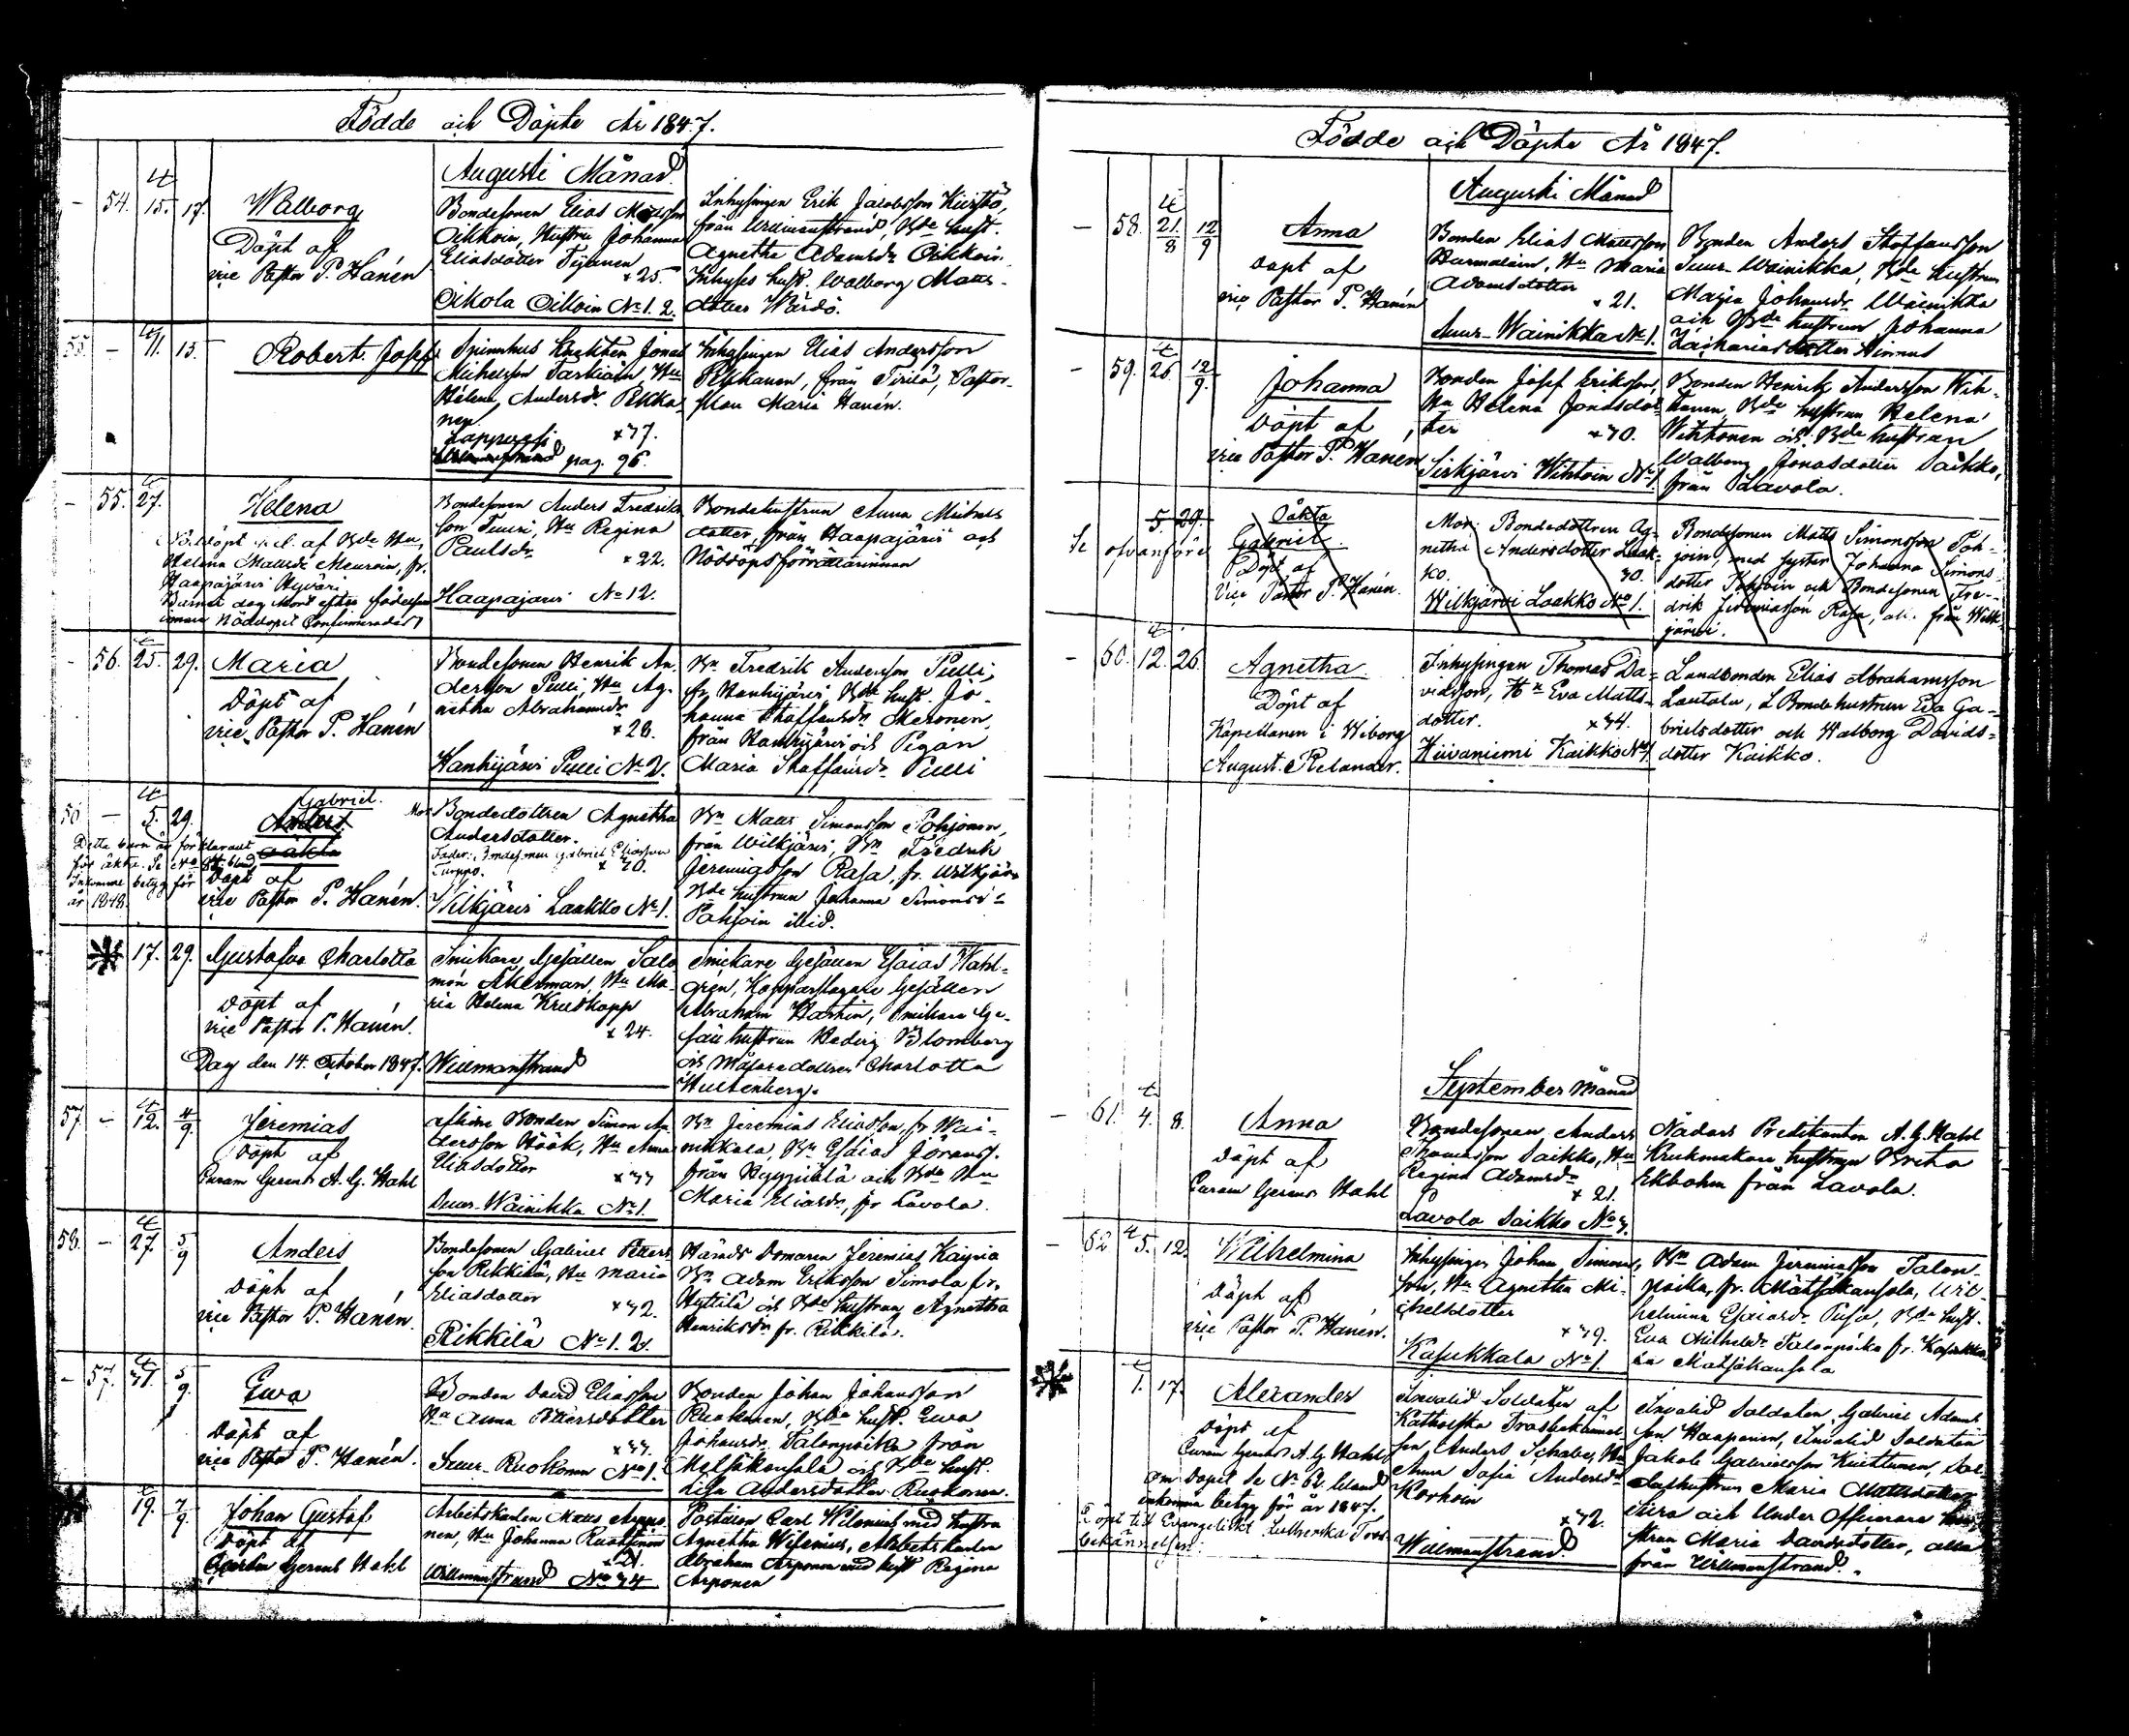 Födde och Döpte År 1847.
Augusti Månad.
- 54. 15. 17. Walborg
Döpt af
vice Pastor P. Hanén
Bondesonen Elias Mattsson
Oikkoin, Hustru Johanna
Eliasdotter Tyänen
× 25.
Oikola Oikkoin No 1. 2.
Inhysingen Erik Jacobsson
från Willmanstrand, Bde hust.
Agnetha Adamsdr Oikkoin.
Inhyses hust. Walborg Matts-
dotter
55. - 11. 13. Robert Josef
Spinnhus Knekten Jonas
Michelsson Hu
Helena Andersdr Pekka-
nen.
Lappvesi × 37.
pag. 96.
Inhysingen Elias Andersson
Pekkanen, från Tirilä, Pastor-
skan Maria Hanén.
- 55. 27. Helena
Nöddöpt af Bde Hu
Helena Mattsdr fr.
Haapajärvi Hyväri
Bondesonen Anders Fredriks-
son Hu Regina
Paulsdr
× 22.
Haapajärvi No 12.
Bondehustrun Anna Michels-
dotter, från Haapajärvi och
Nöddopsförrättarinnan
- 56. 25. 29. Maria
Döpt af
vice Pastor P. Hanén
Bondesonen Henrik An-
dersson Pulli, Hu Ag-
netha Abrahamsdr
× 28.
Hanhijärvi Pulli No 2.
Bn Fredrik Andersson Pulli,
fr. Hanhijärvi, Bde hust. Jo-
hanna Staffansdr Meronen,
från Hanhijärvi och Pigan
Maria Staffansdr Pulli
56 - 5. 29. Gabriel.
Anders
oäkta
Detta barn är förklaradt
för äkta. Se No bland
Inkomne betyg för
år 1848.
Döpt af
vice Pastor P. Hanén.
Mor: Bondedottren Agnetha
Andersdotter.
Fader: Bondesonen Gabriel Eliasson
Turppo.
× 30.
Wilkjärvi Laakko No 1.
Bn Matts Simonsson Pohjonen,
från Wilkjärvi, Bn Fredrik
Jeremiasson Rasa, fr. Wilkjärvi
Bde hustrun Johanna Simonsdr
Pohjoin ibid.
17. 29. Gustafva Charlotta
Döpt af
vice Pastor P. Hanén.
Dag den 14. October 1847.
Snickare Gesällen Salo-
mon Åkerman, Hu Ma-
ria Helena Krutkopp
× 24.
Willmanstrand
Snickare Gesällen Esaias Wahl-
grén, Kopparslagare Gesällen
Abraham Snickare Ge-
säll hustrun Hedvig Blomberg
och Målaredottren Charlotta
Hultenberg.
57. - 12. 4/9. Jeremias
Döpt af
Curam Gerens A. G. Hahl
afledne Bonden Simon An-
dersson Höök, Hu Anna
Eliasdotter
× 33
Suur-Wainikka No 1.
Bn Jeremias Eliasson, fr Wai-
nikkala, Bn Esaias Göranss.
från och Bde Hu
Maria Eliasdr, fr Lavola.
58. - 27. 5/9 Anders
Döpt af
vice Pastor P. Hanén.
Bondesonen Gabriel Petters-
son Rikkilä, Hu Maria
Eliasdotter
× 32.
Rikkilä No 1. 2.
Härads Domaren Jeremias
Bn Adam Eriksson Simola fr.
Hyttilä och Bde hustrun Agnetha
Henriksdr fr. Rikkilä.
- 57. 31. 5/9. Ewa
Döpt af
vice Pastor P. Hanén.
Bonden David Eliasson
Hu Anna Pettersdotter
× 33.
Suur-Ruokonen No 1.
Bonden Johan Johansson
Ruokonen, Bde hust. Ewa
Johansdr Talonpoika från
Mattskansala och Bde hust.
Lisa Andersdotter Ruokonen.
19. 7/9 Johan Gustaf
Döpt af
Curam Gerens Hahl
Arbetskarlen Matts Arppo-
nen, Hu Johanna
× 21.
Willmanstrand No 34
Postiljon Carl Wilenius med hustru
Agnetha Wilenius, Arbetskarlen
Abraham Arponen med hust Regina
Arponen
Födde och Döpte År 1847.
Augusti Månad
- 58. 21/8 12/9 Anna
Döpt af
vice Pastor P. Hanén
Bonden Elias Mattsson
Hurmalain, Hu Maria
Adamsdotter
× 21.
Suur-Wainikka No 1.
Bonden Anders Staffansson
Suur-Wainikka, Bde hustrun
Maria Johansdr Wainikka
och Bde hustrun Johanna
Zachariasdotter Hinnus
- 59. 26. 12/9. Johanna
Döpt af
vice Pastor P. Hanén
Bonden Josef Eriksson,
Hu Helena Jonasdot-
ter
× 30.
Sirkjärvi Wihtoin No 1.
Bonden Henrik Andersson Wih-
tonen, Bde hustrun Helena
Wihtonen och Bde hustrun
Walborg Jonasdotter Saikko,
från Lavola.
Se ofvanföre
5. 29. Oäkta
Gabriel.
Döpt af
Vice Pastor P. Hanén.
Mor: Bondedottren Ag-
netha Andersdotter Laak-
ko.
30.
Wilkjärvi Laakko No 1.
Bondesonen Matts Simonsson Poh-
join, med syster Johanna Simons-
dotter Pohjoin och Bondesonen Fre-
drik Jeremiasson Rasa, alla från Wilk-
järvi.
- 60. 12. 26. Agnetha
Döpt af
Kapellanen i Wiborg
August. Relander.
Inhysingen Thomas Da-
vidsson, Hn Eva Matts-
dotter.
× 34.
Hiivaniemi Kaikko No 1.
Landbonden Elias Abrahamsson
Lautala, L. Bondehustrun Eva Ga-
brielsdotter och Walborg Davids-
dotter Kaikko.
September Månad
- 61. 4. 8. Anna
Döpt af
Curam Gerens Hahl
Bondesonen Anders
Thomasson Saikko, Hu
Regina Adamsdr
× 21.
Lavola Saikko No 3.
Nådårs Predikanten A. G. Hahl
Krukmakare hustrun Brita
Ekbohm från Lavola.
- 62 5. 12. Wilhelmina
Döpt af
vice Pastor P. Hanén.
Inhysingen Johan Simons-
son, Hu Agnetha Mi-
chelsdotter
× 39.
Kasukkala No 1.
Bn Adam Jeremiasson Talon-
poika, fr. Mattskansala, Wil-
helmina Esaiasdr Pusa, Bde hust.
Eva Michelsdr Talonpoika fr. Kasukka-
la Mattskansala
1. 17. Alexander
Döpt af
Curam Gerens A. G. Hahl
Om dopet se No 62. bland
inkomna betyg för år 1847.
Döpt till Evangeliskt Lutherska Tros-
bekännelsen.
Invalid Soldaten af
Katholska Trosbekännel-
sen, Anders Hu
Anna Sofia Andersdr
Korhoin
× 32.
Willmanstrand.
Invalid Soldaten Gabriel Adams-
son Haapanen, Invalid Soldaten
Jakob Gabrielsson Sol-
dathustrun Maria Mattsdotter
och Under Officerare hu-
strun Maria Davidsdotter, alla
från Willmanstrand.